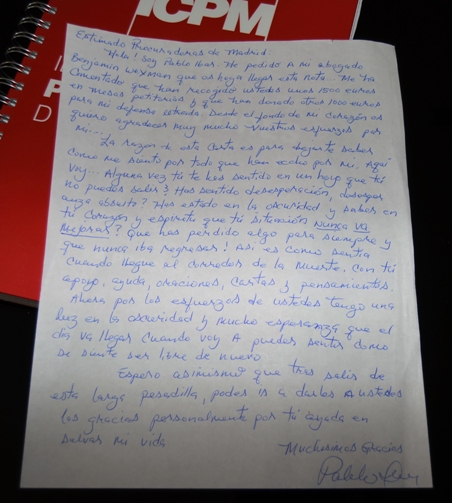 ICPM
Estimado Procuradores de Madrid:
Hola! Soy Pablo Ibar. He pedido a mi abogado
Benjamin Waxman que os haga llegar esta nota. Me ha
comentado que han recogido ustedes unos 1000 euros
en mesas petitorias y que han donado otros 1000 euros
para mi defensa letrada. Desde el fondo de mi corazón os
quiero agradecer muy mucho vuestros esfuerzos por
mi...
La razón de esta carta es para dejarte saber
como me siento por todo que han echo por mi. Aquí
voy... Alguna vez tú te has sentido en un hoyo que tú
no puedes salir? Has sentido desesperación,
absurto? Has estado en la oscuridad y sabes en
tú corazón y espiritu que tú situación nunca va
mejorar? Que has perdido algo para siempre y
que nunca iba regresar! Asi es como sentia
cuando llegue al corredor de la muerte. Con tú
apoyo, ayuda, oraciones, cartas y pensamientos.
Ahora por los esfuerzos de ustedes tengo una
luz en la oscuridad y mucho esperanza que el
día va llegar cuando voy a poder sentir como
se siente ser libre de nuevo.
Espero asimismo que tras salir de
esta larga pesadilla, poder ir a darles a ustedes
las gracias personalmente por tú ayuda en
salvar mi vida
Muchisimas Gracias
Pablo